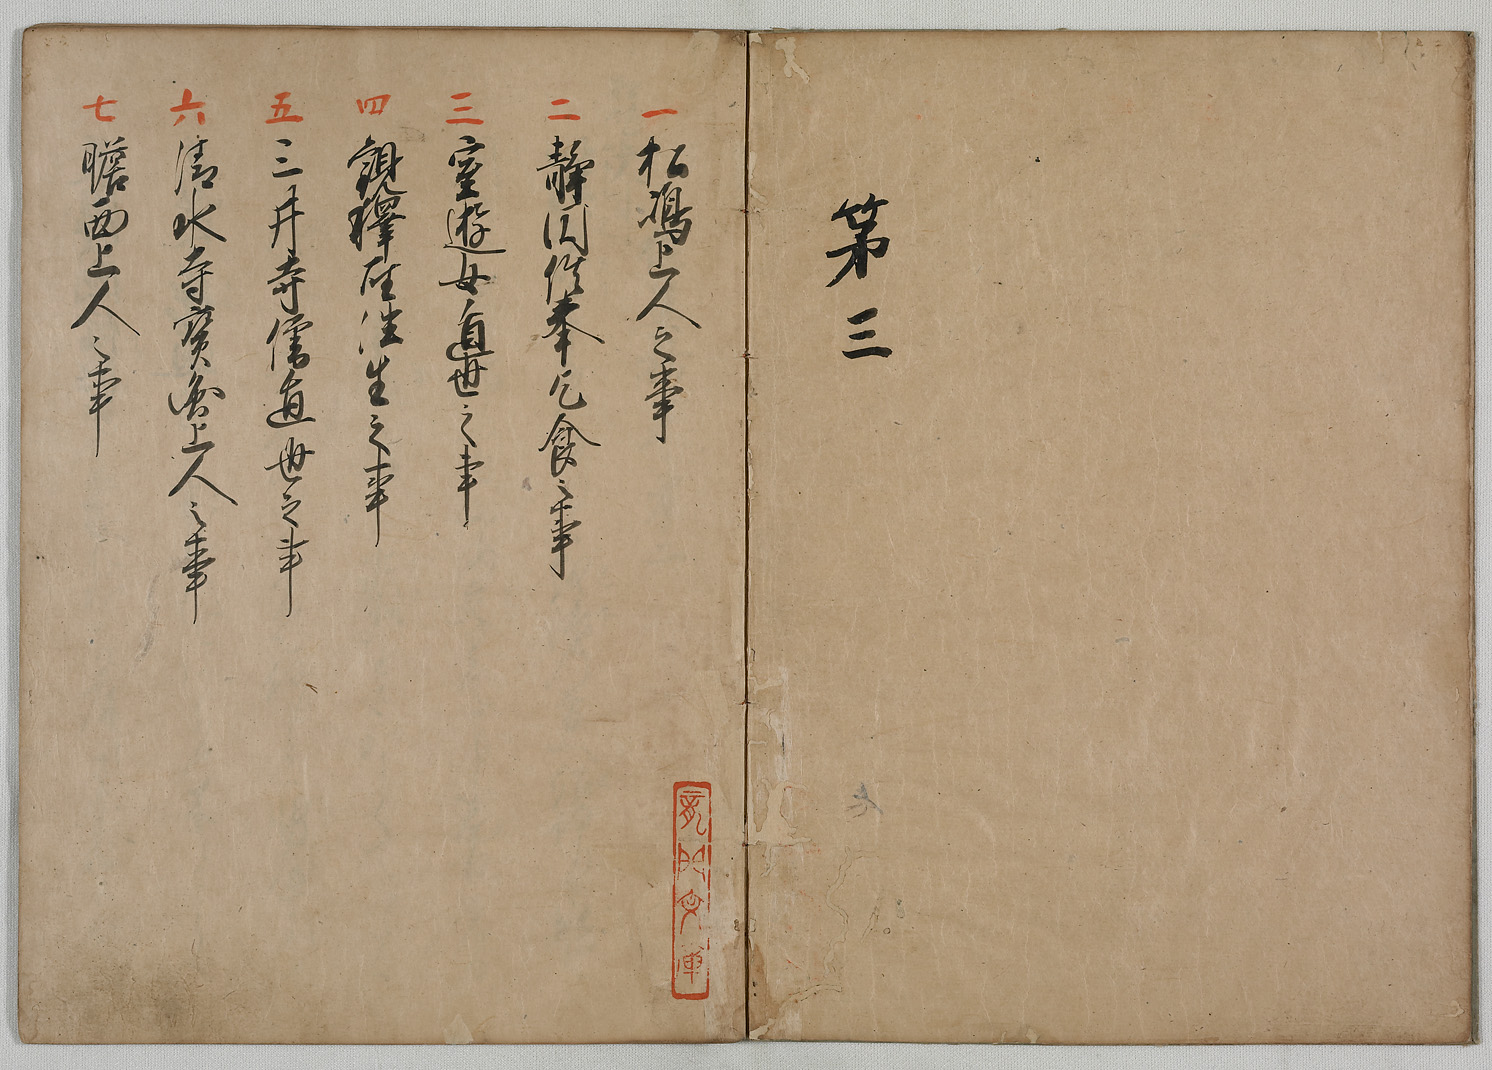 第三
一 松嶋上人之事
二 静円供奉乞食之事
三 室遊女遁世之事
四 観釋聖往生之事
五 三井寺僧遁世之事
六 清水寺寳上人之事
七 瞻西上人之事
龍門文庫